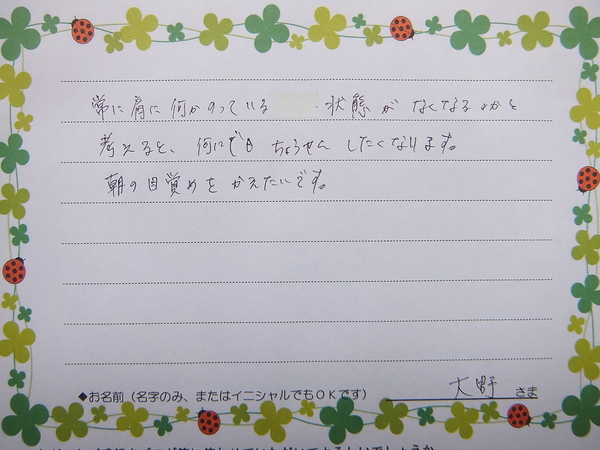 常に肩に何かのっている 状態がなくなるのかと
考えると、何にでもちょうせんしたくなります。
朝の目覚めをかえたいです。
◆お名前（名字のみ、またはイニシャルでもOKです） 大野 さま